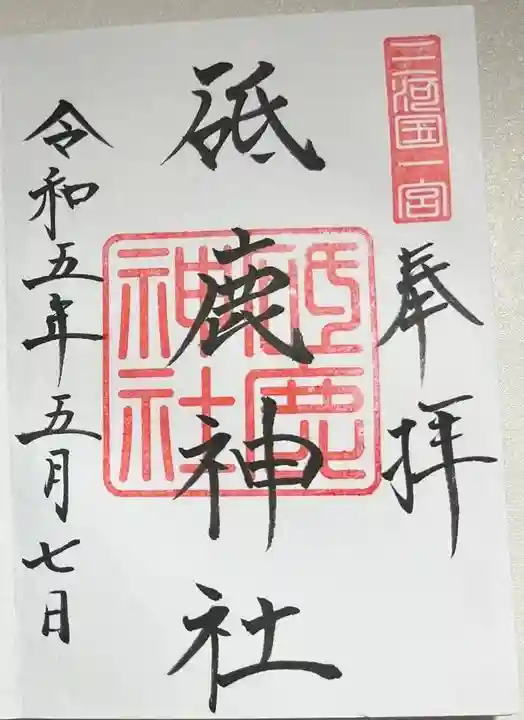 三河国一宮
奉拝
砥鹿神社
砥鹿神社
令和五年五月七日